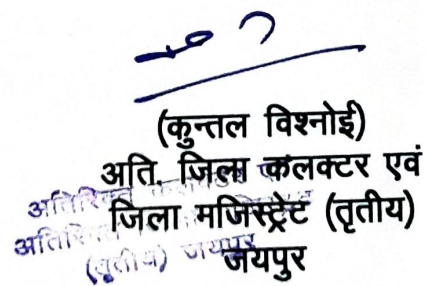 (कुन्तल विश्नोई)
अति. जिला कलक्टर एवं
जिला मजिस्ट्रेट (तृतीय)
जयपुर
अतिरिक्त
अतिरिक्त
(तृतीय) जयपुर